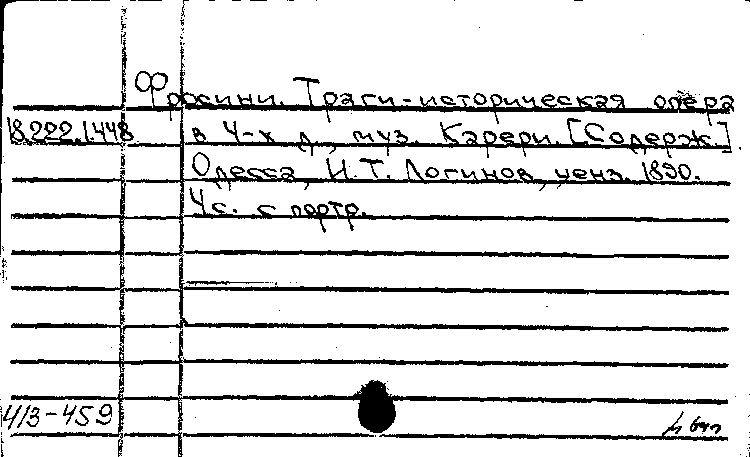 Фросини. Траги-историческая опера
18.222.1.448 в 4-х д., муз. Карери. [Содерж.].
Одесса, И.Т. Логинов, ценз. 1890.
4 с. с портр.
413-459